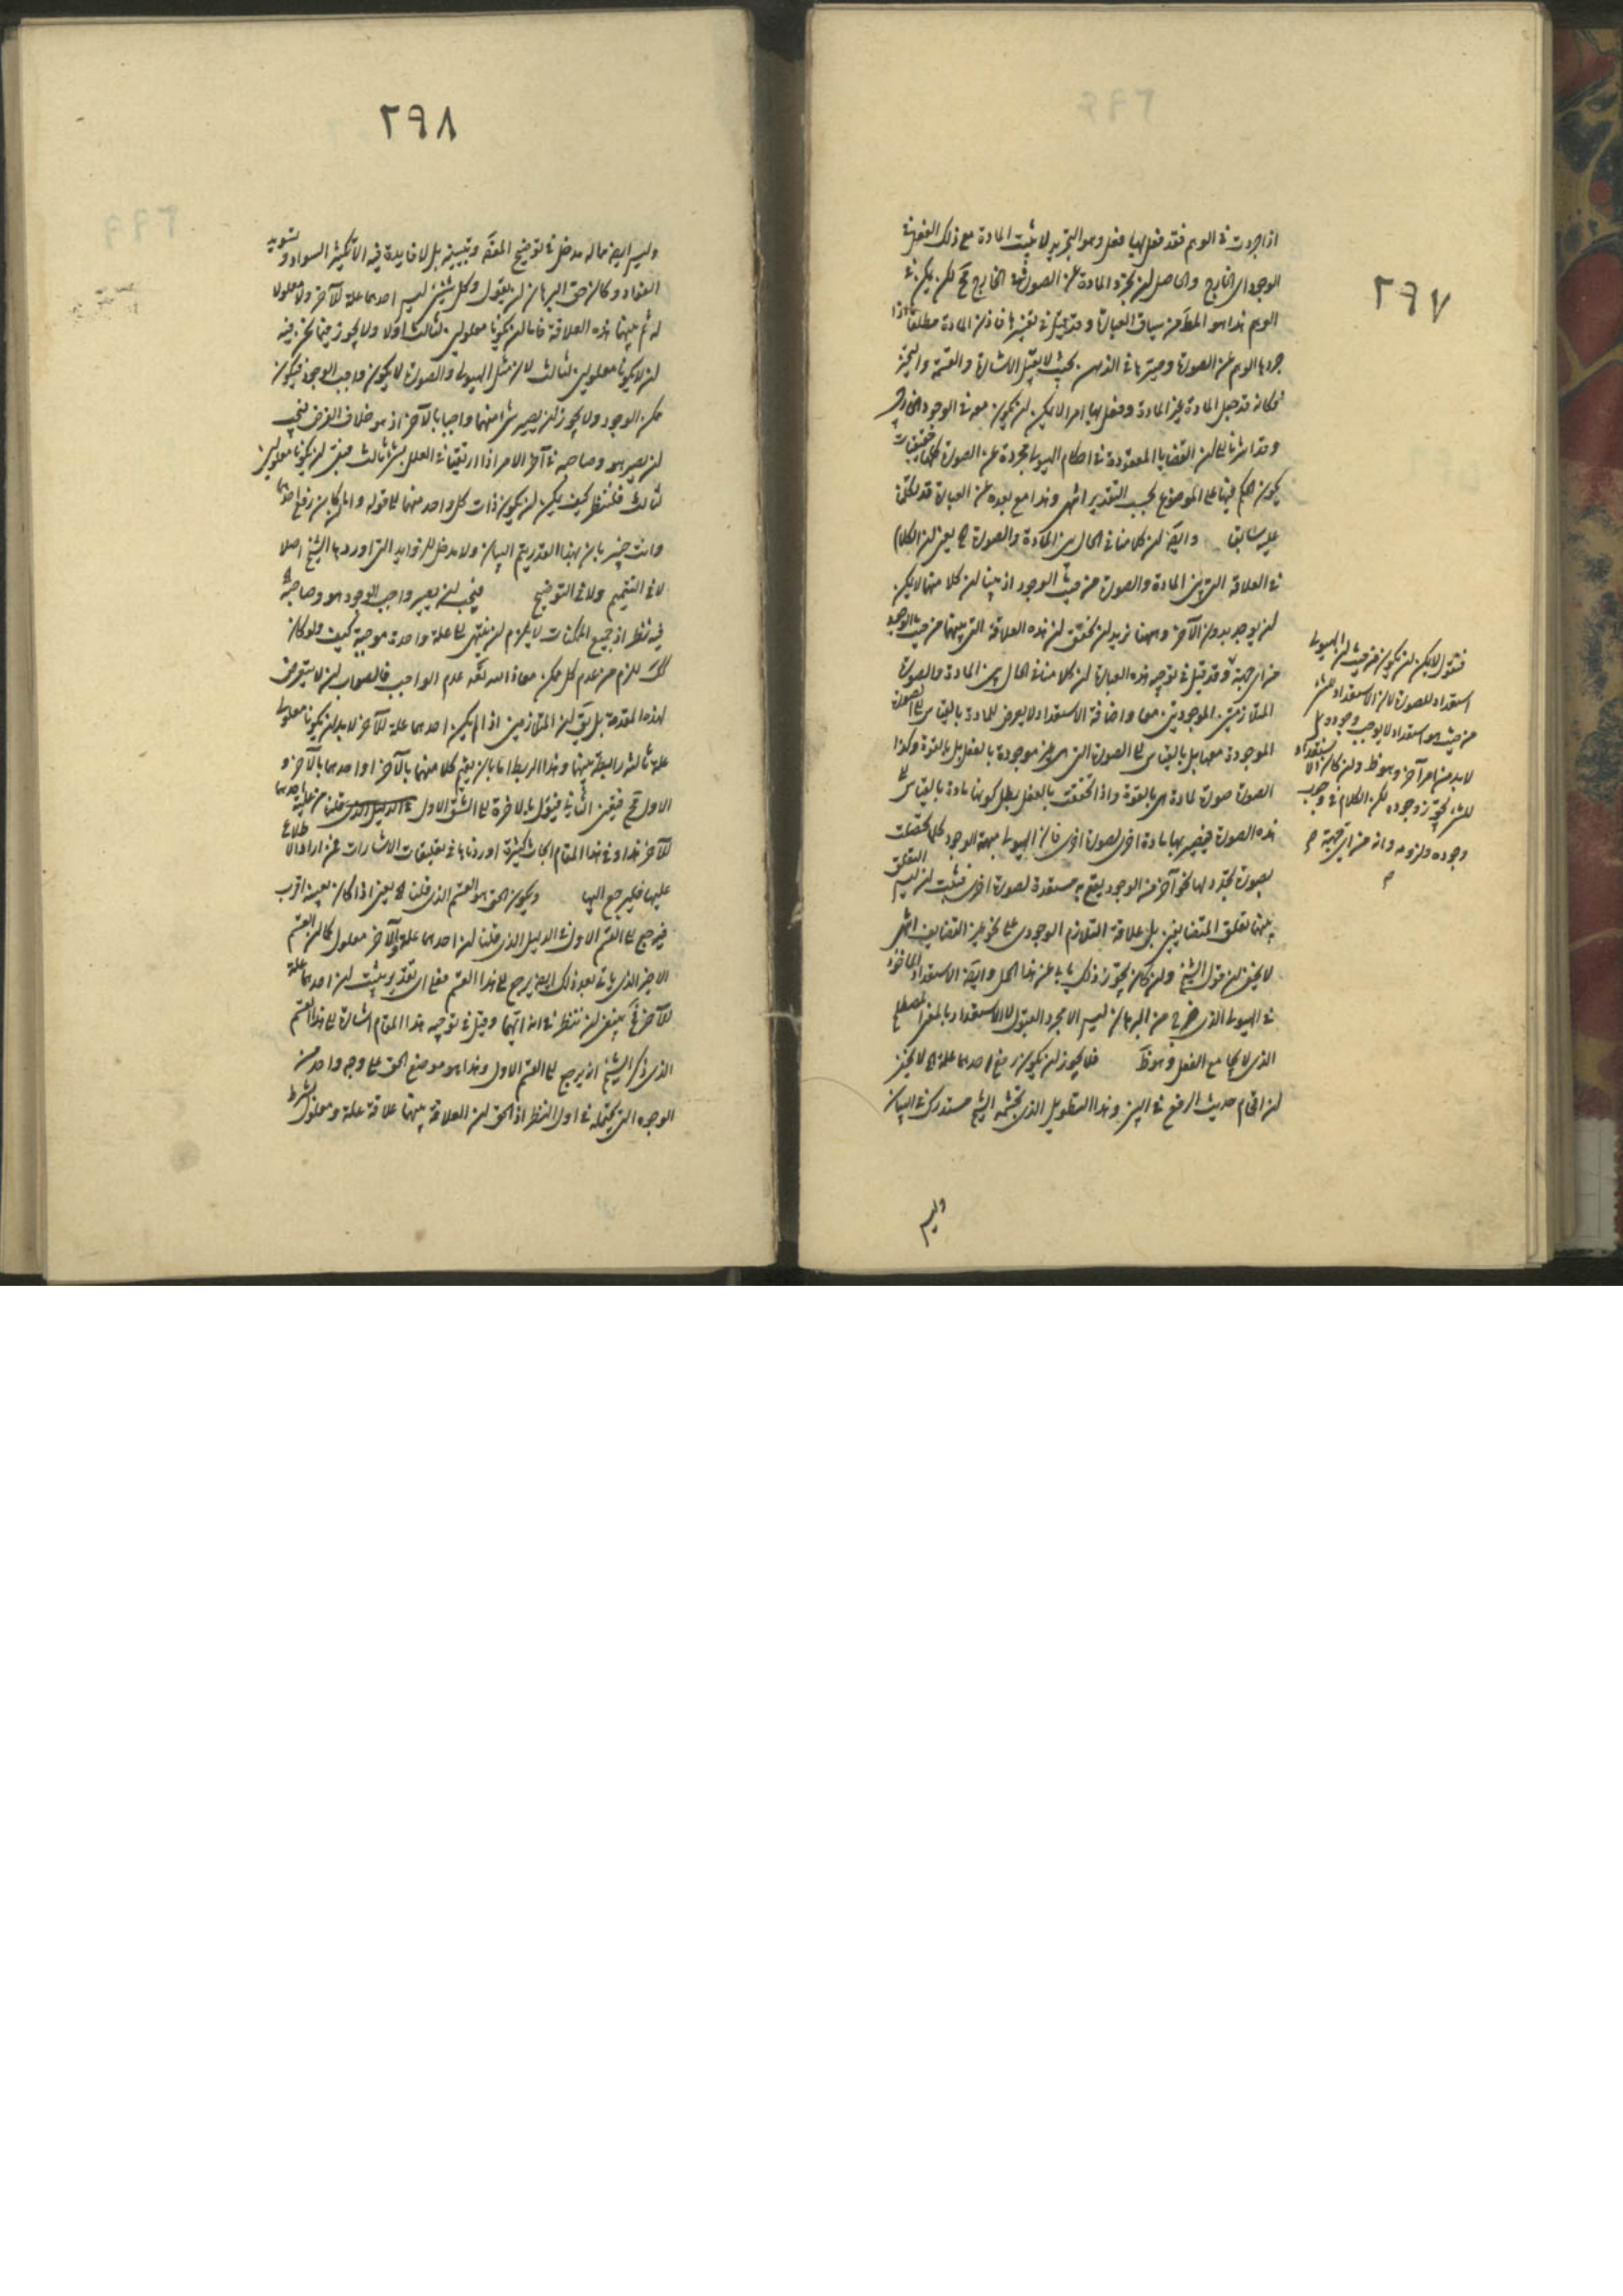 ٢٩٧
اذا جردت في الوهم فقد فعل بها فعل وهو التجريد لا يثبت المادة مع ذلك الفعل في
الوجود اي الخارج والحاصل ان تجرد المادة عن الصورة في الخارج مح لكن يمكن في
الوهم هذا هو المط من سياق العبارة وقد قيل في تفسيرها فاذن المادة مطلقا اذا
جردها الوهم عن الصورة وميزها في الذهن بحيث لا يقبل الاشارة والقسمة والتحيز
فكانه قد جعل المادة غير المادة وفعل بها امرا لا يمكن ان يكون معه في الوجود الخارجي
وقد اشرنا الى ان القضايا المعقودة في احكام الهيولى مجردة عن الصورة كلها حقيقيات
يكون الحكم فيها على الموضوع بحسب التقدير انتهى وهذا مع بعده عن العبارة قد
عليه سابق وايضا ان كلامنا في الحال بين المادة والصورة الخ يعني ان الكلام
في العلاقة التي بين المادة والصورة من حيث الوجود اذ بينا ان كلا منهما لا يمكن
ان يوجد بدون الآخر وههنا نريد ان نحقق ان هذه العلاقة التي بينهما من حيث الوجود
من اي جهة وقد قيل في توجيه هذه العبارة ان كلامنا في الحال بين المادة والصورة
المتلازمتين الموجودتين معا واضافة الاستعداد لا يعرض للمادة بالقياس الى الصورة
الموجودة معها بل بالقياس الى الصورة التي هي غير موجودة بالفعل بل بالقوة وكذا
الصورة صورة لمادة هي بالقوة واذا تحققت بالفعل بطل كونها مادة بالقياس الى
هذه الصورة فيصير بها مادة اخرى لصورة اخرى فان الهيولى مبهمة الوجود كلما تحصلت
بصورة تجدد لها نحو آخر من الوجود يقع به مستعدة لصورة اخرى فثبت ان ليس التعلق
بينهما تعلق المتضايفين بل علاقة التلازم الوجودي على نحو غير التضايف انتهى
لا يخفى ان قول الشيخ وان كان يجوز ذلك يابى عن هذا الحمل وايضا الاستعداد الماخوذ
في الهيولى الذي خرج من البرهان ليس الا مجرد القبول لا الاستعداد بالمعنى المصطلح
الذي لا يجامع الفعل وهو ظ فلا يجوز ان يكون رفع احدهما علة الخ لا يخفى
ان اقحام حديث الرفع في البين وهذا التطويل الذي تجشمه الشيخ مستدرك في البيان
وليس
فنقول لا يمكن ان يكون من حيث ان الهيولى
استعداد للصورة لان الاستعداد للشيء
من حيث هو استعداد لا يوجب وجوده بل
لا بد من امر آخر وهو ظ وان كان الاستعداد
للشيء يجوز وجوده لكن الكلام في وجوب
وجوده ولزومه وانه من اي جهة
٢٩٨
وليس ايضا مما له مدخل في توضيح المقص وتبيينه بل لا فايدة فيه الا تكثير السواد وتسويد
الفؤاد وكان حق البرهان ان يقول وكل شيئين ليس احدهما علة للآخر ولا معلولا
له ثم بينهما هذه العلاقة فاما ان يكونا معلولين لثالث اولا ولا يجوز فيما نحن فيه
ان لا يكونا معلولين لثالث لان مثل الهيولى والصورة لا يكون واجب الوجود فيكون
ممكن الوجود ولا يجوز ان يصير شيء منهما واجبا بالآخر اذ هو خلاف الفرض فيجب
ان يصير هو وصاحبه في آخر الامر اذا ارتقينا في العلل بشيء ثالث فبقي ان يكونا معلولين
لثالث فلننظر كيف يمكن ان يكون ذات كل واحد منهما الى قوله واما ان كان رفع احدهما
وانت خبير بان بهذا القدر يتم البيان ولا مدخل للزوايد التي اوردها الشيخ اصلا
لا في التتميم ولا في التوضيح فيجب ان يصير واجب الوجود هو وصاحبه الخ
فيه نظر اذ جميع الممكنات لا يلزم ان ينتهي الى علة واحدة موجبة كيف ولو كان
كذلك للزم من عدم كل ممكن معاذ الله تعالى عدم الواجب فالصواب ان لا يتعرض
لهذه المقدمة بل يق ان المتلازمين اذا لم يكن احدهما علة للآخر لا بد ان يكونا معلولي
علة ثالثة رابطة بينهما وهذا الربط اما بان يقيم كلا منهما بالآخر او احدهما بالآخر و
الاول مح فبقي الثاني فيؤل بالاخرة الى الشق الاول قلنا من علية احدهما
للآخر هذا وفي هذا المقام ابحاث كثيرة اوردناها في تعليقات الاشارات من اراد الاطلاع
عليها فليرجع اليها ويكون الحق هو القسم الذي قلنا الخ يعني اذا كان بعينه اقرب
فيرجع الى القسم الاول في الدليل الذي قلنا ان احدهما علة والآخر معلول كما ان القسم
الاخير الذي ياتي بعد ذلك ايضا يرجع الى هذا القسم فعلى اي تقدير يثبت ان احدهما علة
للآخر فح ينبغي ان ننظر في انه ايهما وقيل في توجيه هذا المقام اشارة الى هذا القسم
الذي ذكر الشيخ انه يرجع الى القسم الاول وهذا هو موضع الحق على وجه واحد من
الوجوه التي يحتمله في اول النظر اذ الحق ان العلاقة بينهما علاقة علة ومعلول بشرط